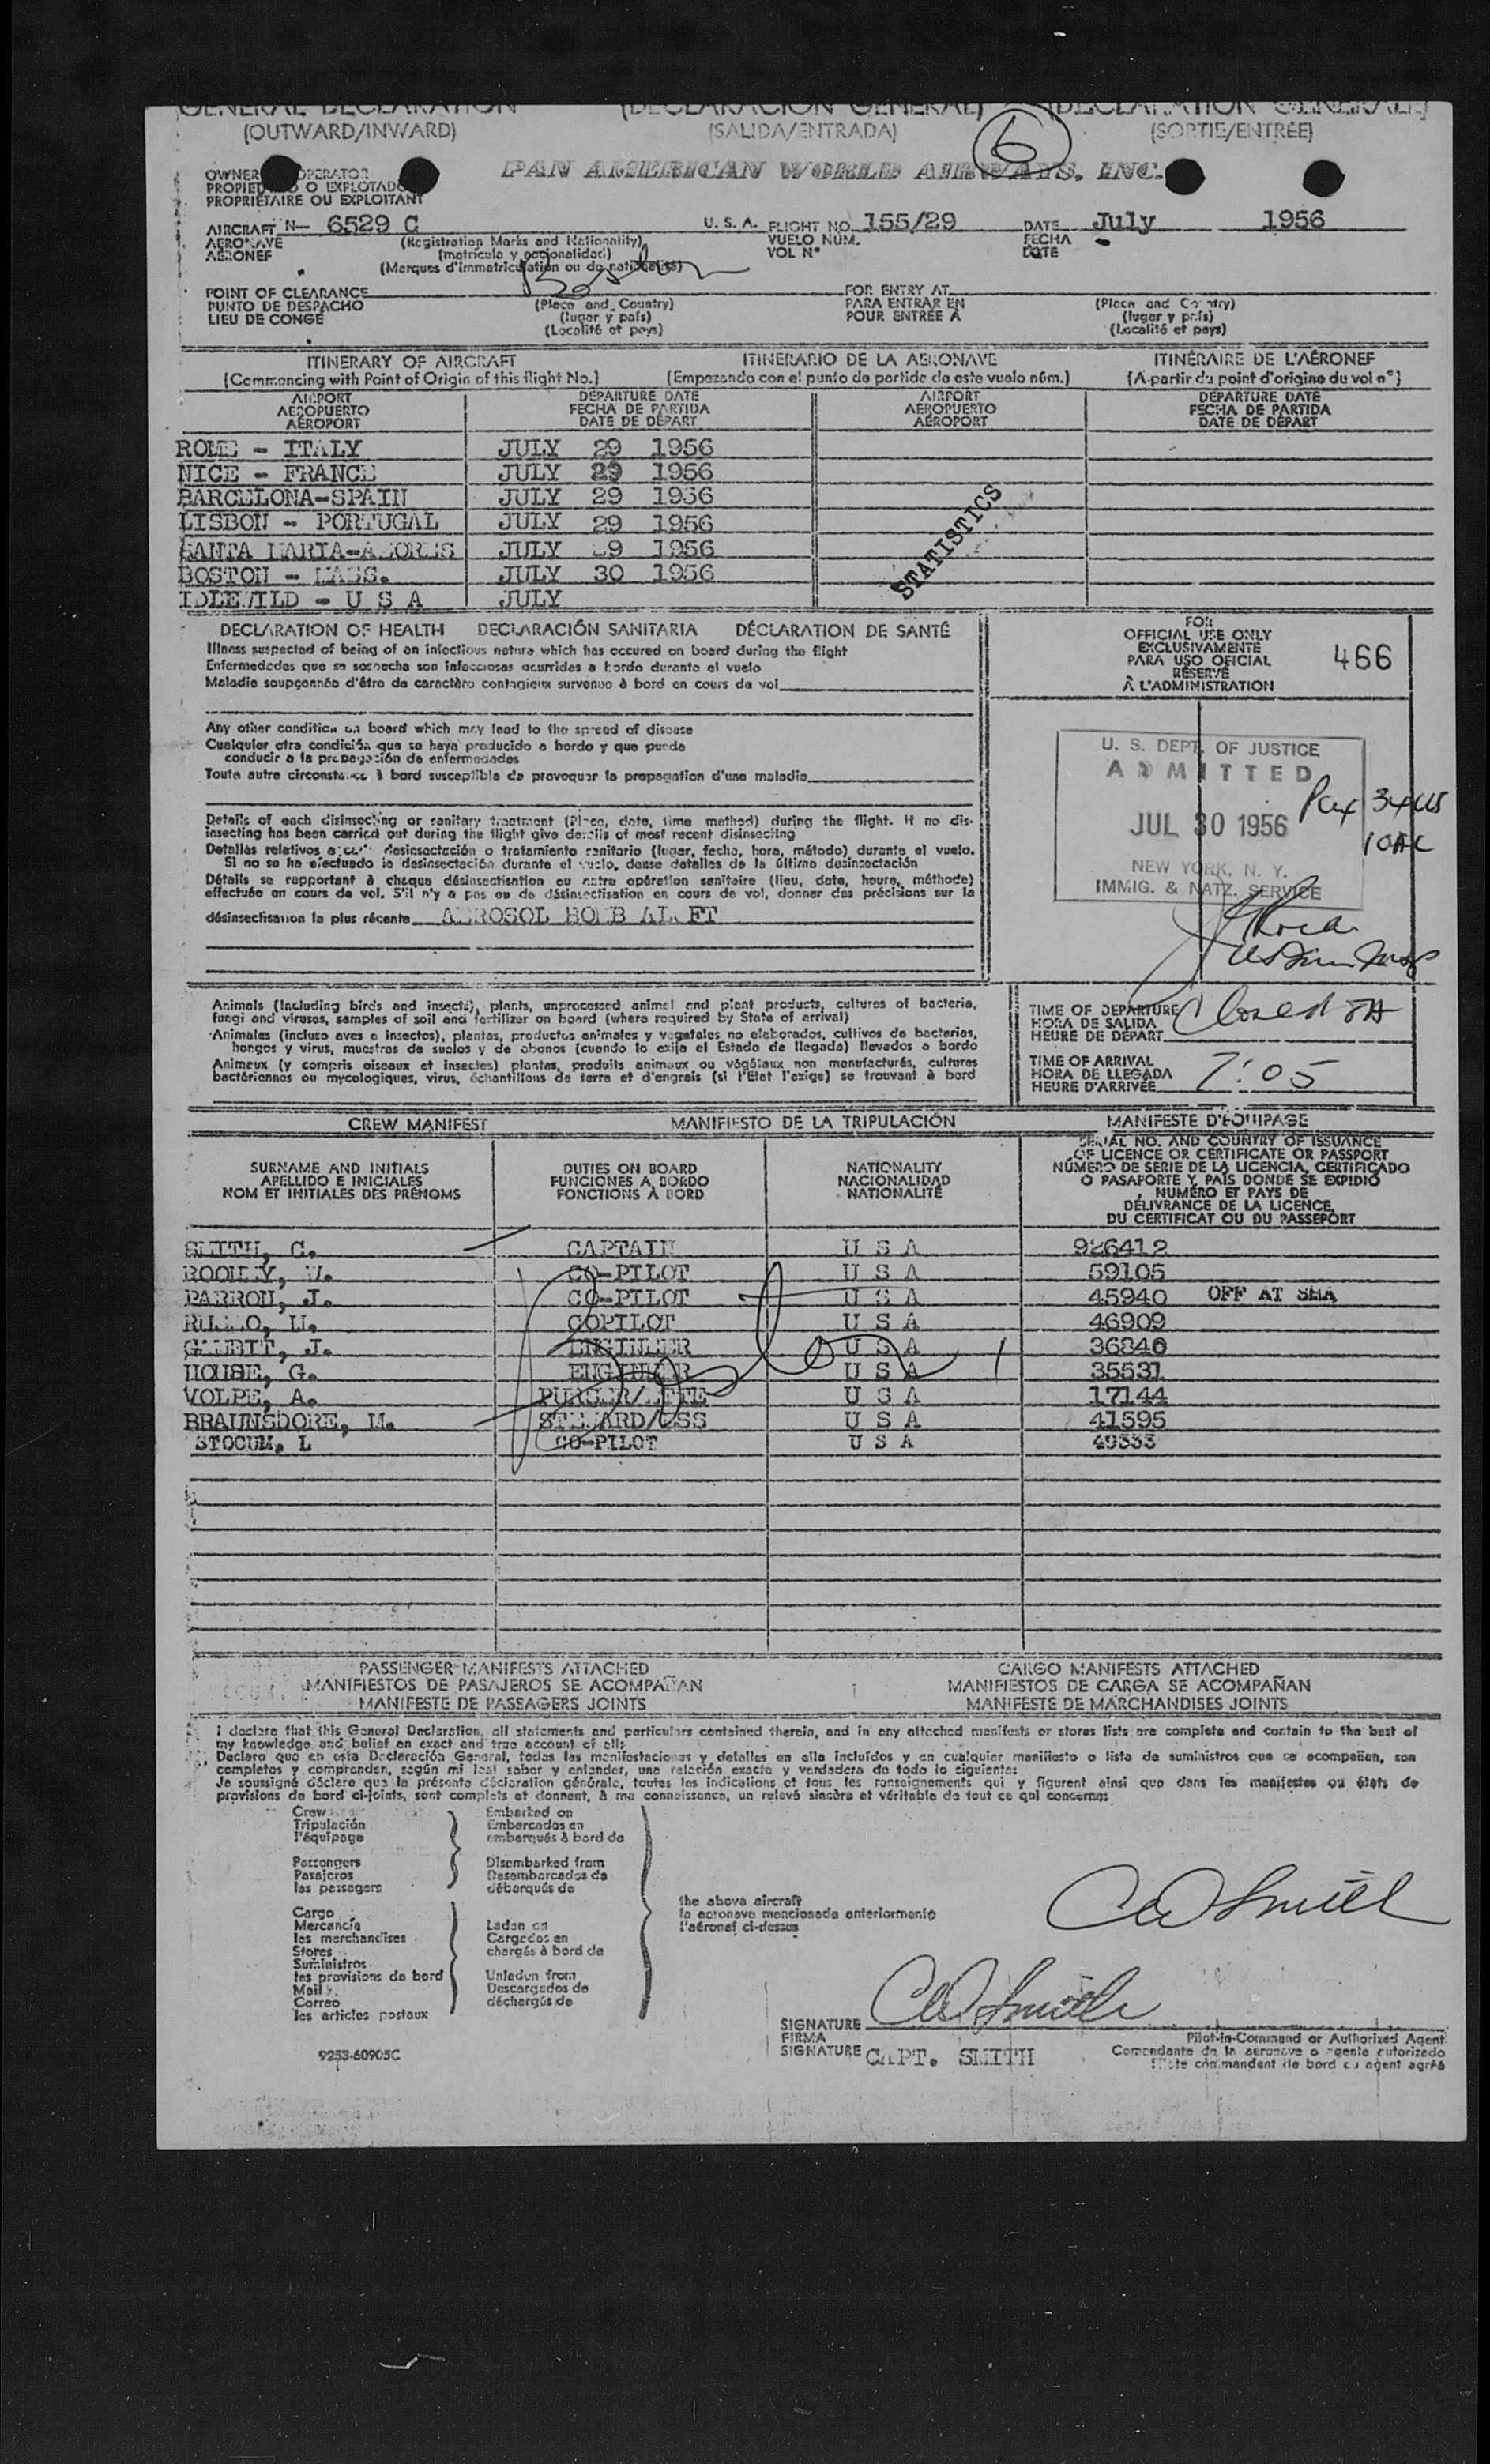 GENERAL DECLARATION (DECLARACIÓN GENERAL) (DÉCLARATION GÉNÉRALE)
(OUTWARD/INWARD) (SALIDA/ENTRADA) (SORTIE/ENTRÉE)
6
OWNER OPERATOR PAN AMERICAN WORLD AIRWAYS, INC.
O EXPLOTADOR
PROPRIÉTAIRE OU EXPLOITANT
AIRCRAFT N- 6529 C U. S. A. FLIGHT NO. 155/29 DATE July 1956
AERONAVE (Registration Marks and Nationality) VUELO NÚM. FECHA
AÉRONEF (matrícula y nacionalidad) VOL N° DATE
(Marques d'immatriculation ou de nationalité)
Boston
POINT OF CLEARANCE FOR ENTRY AT
PUNTO DE DESPACHO (Place and Country) PARA ENTRAR EN (Place and Country)
LIEU DE CONGÉ (lugar y país) POUR ENTRÉE À (lugar y país)
(Localité et pays) (Localité et pays)
ITINERARY OF AIRCRAFT ITINERARIO DE LA AERONAVE ITINÉRAIRE DE L'AÉRONEF
(Commencing with Point of Origin of this flight No.) (Empezando con el punto de partida de este vuelo núm.) (À partir du point d'origine du vol n°)
AIRPORT DEPARTURE DATE AIRPORT DEPARTURE DATE
AEROPUERTO FECHA DE PARTIDA AEROPUERTO FECHA DE PARTIDA
AÉROPORT DATE DE DÉPART AÉROPORT DATE DE DÉPART
ROME - ITALY JULY 29 1956
NICE - FRANCE JULY 29 1956
BARCELONA-SPAIN JULY 29 1956
LISBON - PORTUGAL JULY 29 1956
SANTA MARIA-AZORES JULY 29 1956
BOSTON - MASS. JULY 30 1956
IDLEWILD - U S A JULY
STATISTICS
DECLARATION OF HEALTH DECLARACIÓN SANITARIA DÉCLARATION DE SANTÉ
Illness suspected of being of an infectious nature which has occured on board during the flight
Enfermedades que se sospecha son infecciosas ocurridas a bordo durante el vuelo
Maladie soupçonnée d'être de caractère contagieux survenue à bord en cours de vol
FOR
OFFICIAL USE ONLY
EXCLUSIVAMENTE
PARA USO OFICIAL
RÉSERVÉ
À L'ADMINISTRATION
466
Any other condition on board which may lead to the spread of disease
Cualquier otra condición que se haya producido a bordo y que pueda
conducir a la propagación de enfermedades
Toute autre circonstance à bord susceptible de provoquer la propagation d'une maladie
U. S. DEPT. OF JUSTICE
ADMITTED
JUL 30 1956
NEW YORK, N. Y.
IMMIG. & NATZ. SERVICE
Pax 34 US
10 AC
Details of each disinsecting or sanitary treatment (Place, date, time method) during the flight. If no dis-
insecting has been carried out during the flight give details of most recent disinsecting
Detalles relativos a cada desinsectación o tratamiento sanitario (lugar, fecha, hora, método) durante el vuelo.
Si no se ha efectuado la desinsectación durante el vuelo, dense detalles de la última desinsectación
Détails se rapportant à chaque désinsectisation ou autre opération sanitaire (lieu, date, heure, méthode)
effectuée en cours de vol. S'il n'y a pas eu de désinsectisation en cours de vol, donner des précisions sur la
désinsectisation la plus récente AEROSOL BOMB ALOFT
Animals (including birds and insects), plants, unprocessed animal and plant products, cultures of bacteria,
fungi and viruses, samples of soil and fertilizer on board (where required by State of arrival)
Animales (incluso aves e insectos), plantas, productos animales y vegetales no elaborados, cultivos de bacterias,
hongos y virus, muestras de suelos y de abonos (cuando lo exija el Estado de llegada) llevados a bordo
Animaux (y compris oiseaux et insectes) plantes, produits animaux ou végétaux non manufacturés, cultures
bactériennes ou mycologiques, virus, échantillons de terre et d'engrais (si l'Etat l'exige) se trouvant à bord
TIME OF DEPARTURE
HORA DE SALIDA Closed
HEURE DE DÉPART
TIME OF ARRIVAL
HORA DE LLEGADA 7:05
HEURE D'ARRIVÉE
CREW MANIFEST MANIFIESTO DE LA TRIPULACIÓN MANIFESTE D'ÉQUIPAGE
SURNAME AND INITIALS DUTIES ON BOARD NATIONALITY
APELLIDO E INICIALES FUNCIONES A BORDO NACIONALIDAD
NOM ET INITIALES DES PRÉNOMS FONCTIONS À BORD NATIONALITÉ
SERIAL NO. AND COUNTRY OF ISSUANCE
OF LICENCE OR CERTIFICATE OR PASSPORT
NÚMERO DE SERIE DE LA LICENCIA, CERTIFICADO
O PASAPORTE Y PAÍS DONDE SE EXPIDIÓ
NUMÉRO ET PAYS DE
DÉLIVRANCE DE LA LICENCE,
DU CERTIFICAT OU DU PASSEPORT
SMITH, C. CAPTAIN U S A 926412
CO-PILOT U S A 59105
PARROU, J. CO-PILOT U S A 45940 OFF AT SMA
COPILOT U S A 46909
ENGINEER U S A 36846
HOUSE, G. ENGINEER U S A 35531
VOLPE, A. PURSER/ETTE U S A 17144
BRAUNSDORE, M. STEWARD/ESS U S A 41595
STOCUM, L CO-PILOT U S A 49333
Boston
PASSENGER MANIFESTS ATTACHED CARGO MANIFESTS ATTACHED
MANIFIESTOS DE PASAJEROS SE ACOMPAÑAN MANIFIESTOS DE CARGA SE ACOMPAÑAN
MANIFESTE DE PASSAGERS JOINTS MANIFESTE DE MARCHANDISES JOINTS
I declare that this General Declaration, all statements and particulars contained therein, and in any attached manifests or stores lists are complete and contain to the best of
my knowledge and belief an exact and true account of all:
Declaro que en esta Declaración General, todas las manifestaciones y detalles en ella incluídos y en cualquier manifiesto o lista de suministros que se acompañen, son
completos y comprenden, según mi leal saber y entender, una relación exacta y verdadera de todo lo siguiente:
Je soussigné déclare que la présente déclaration générale, toutes les indications et tous les renseignements qui y figurent ainsi que dans les manifestes ou états de
provisions de bord ci-joints, sont complets et donnent, à ma connaissance, un relevé sincère et véritable de tout ce qui concerne:
Crew Embarked on
Tripulación Embarcados en
l'équipage embarqués à bord de
Passengers Disembarked from
Pasajeros Desembarcados de
les passagers débarqués de
Cargo
Mercancía Laden on
les marchandises Cargados en
Stores chargés à bord de
Suministros
les provisions de bord Unladen from
Mail Descargados de
Correo déchargés de
les articles postaux
the above aircraft
la aeronave mencionada anteriormente
l'aéronef ci-dessus
CW Smith
SIGNATURE CW Smith
FIRMA Pilot-in-Command or Authorized Agent
SIGNATURE CAPT. SMITH Comandante de la aeronave o agente autorizado
Pilote commandant de bord ou agent agréé
9253-60905C